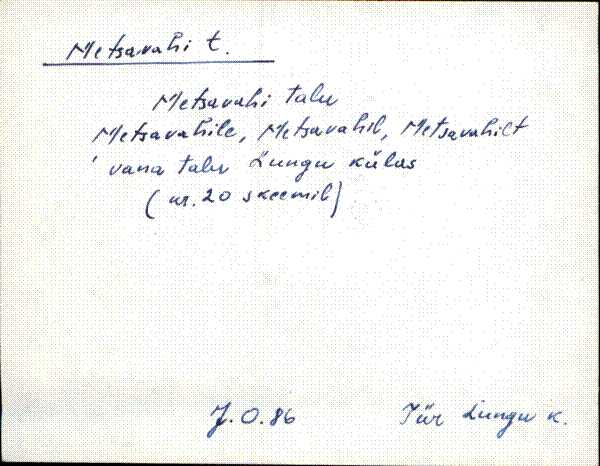 Metsavahi t.
Metsavahi talu
Metsavahile, Metsavahil, Metsavahilt
' vana talu Lungu külas
(nr. 20 skeemil)
J. O. 86
Tür Lungu k.